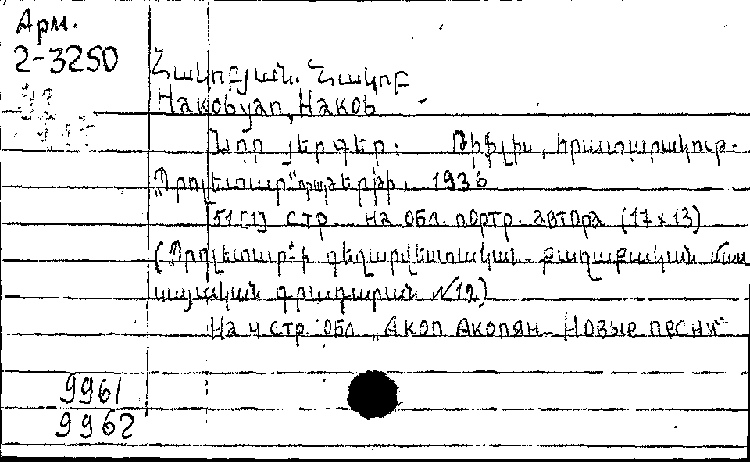 Арм.
2-3250
Հակոբյան. Հակոբ
Hakobyan, Hakob
Նոր յերգեր. Թիֆլիս, հրատարակութ.
„Պրոլետար“ թերթի. 1936
51 [1] стр. на обл. портр. автора (17х13)
(„Պրոլետար“-ի գեղարվեստական-քաղաքական մաս
սայական գրադարան №12)
На 4 стр. обл. „Акоп Акопян Новые песни“
9961
9962